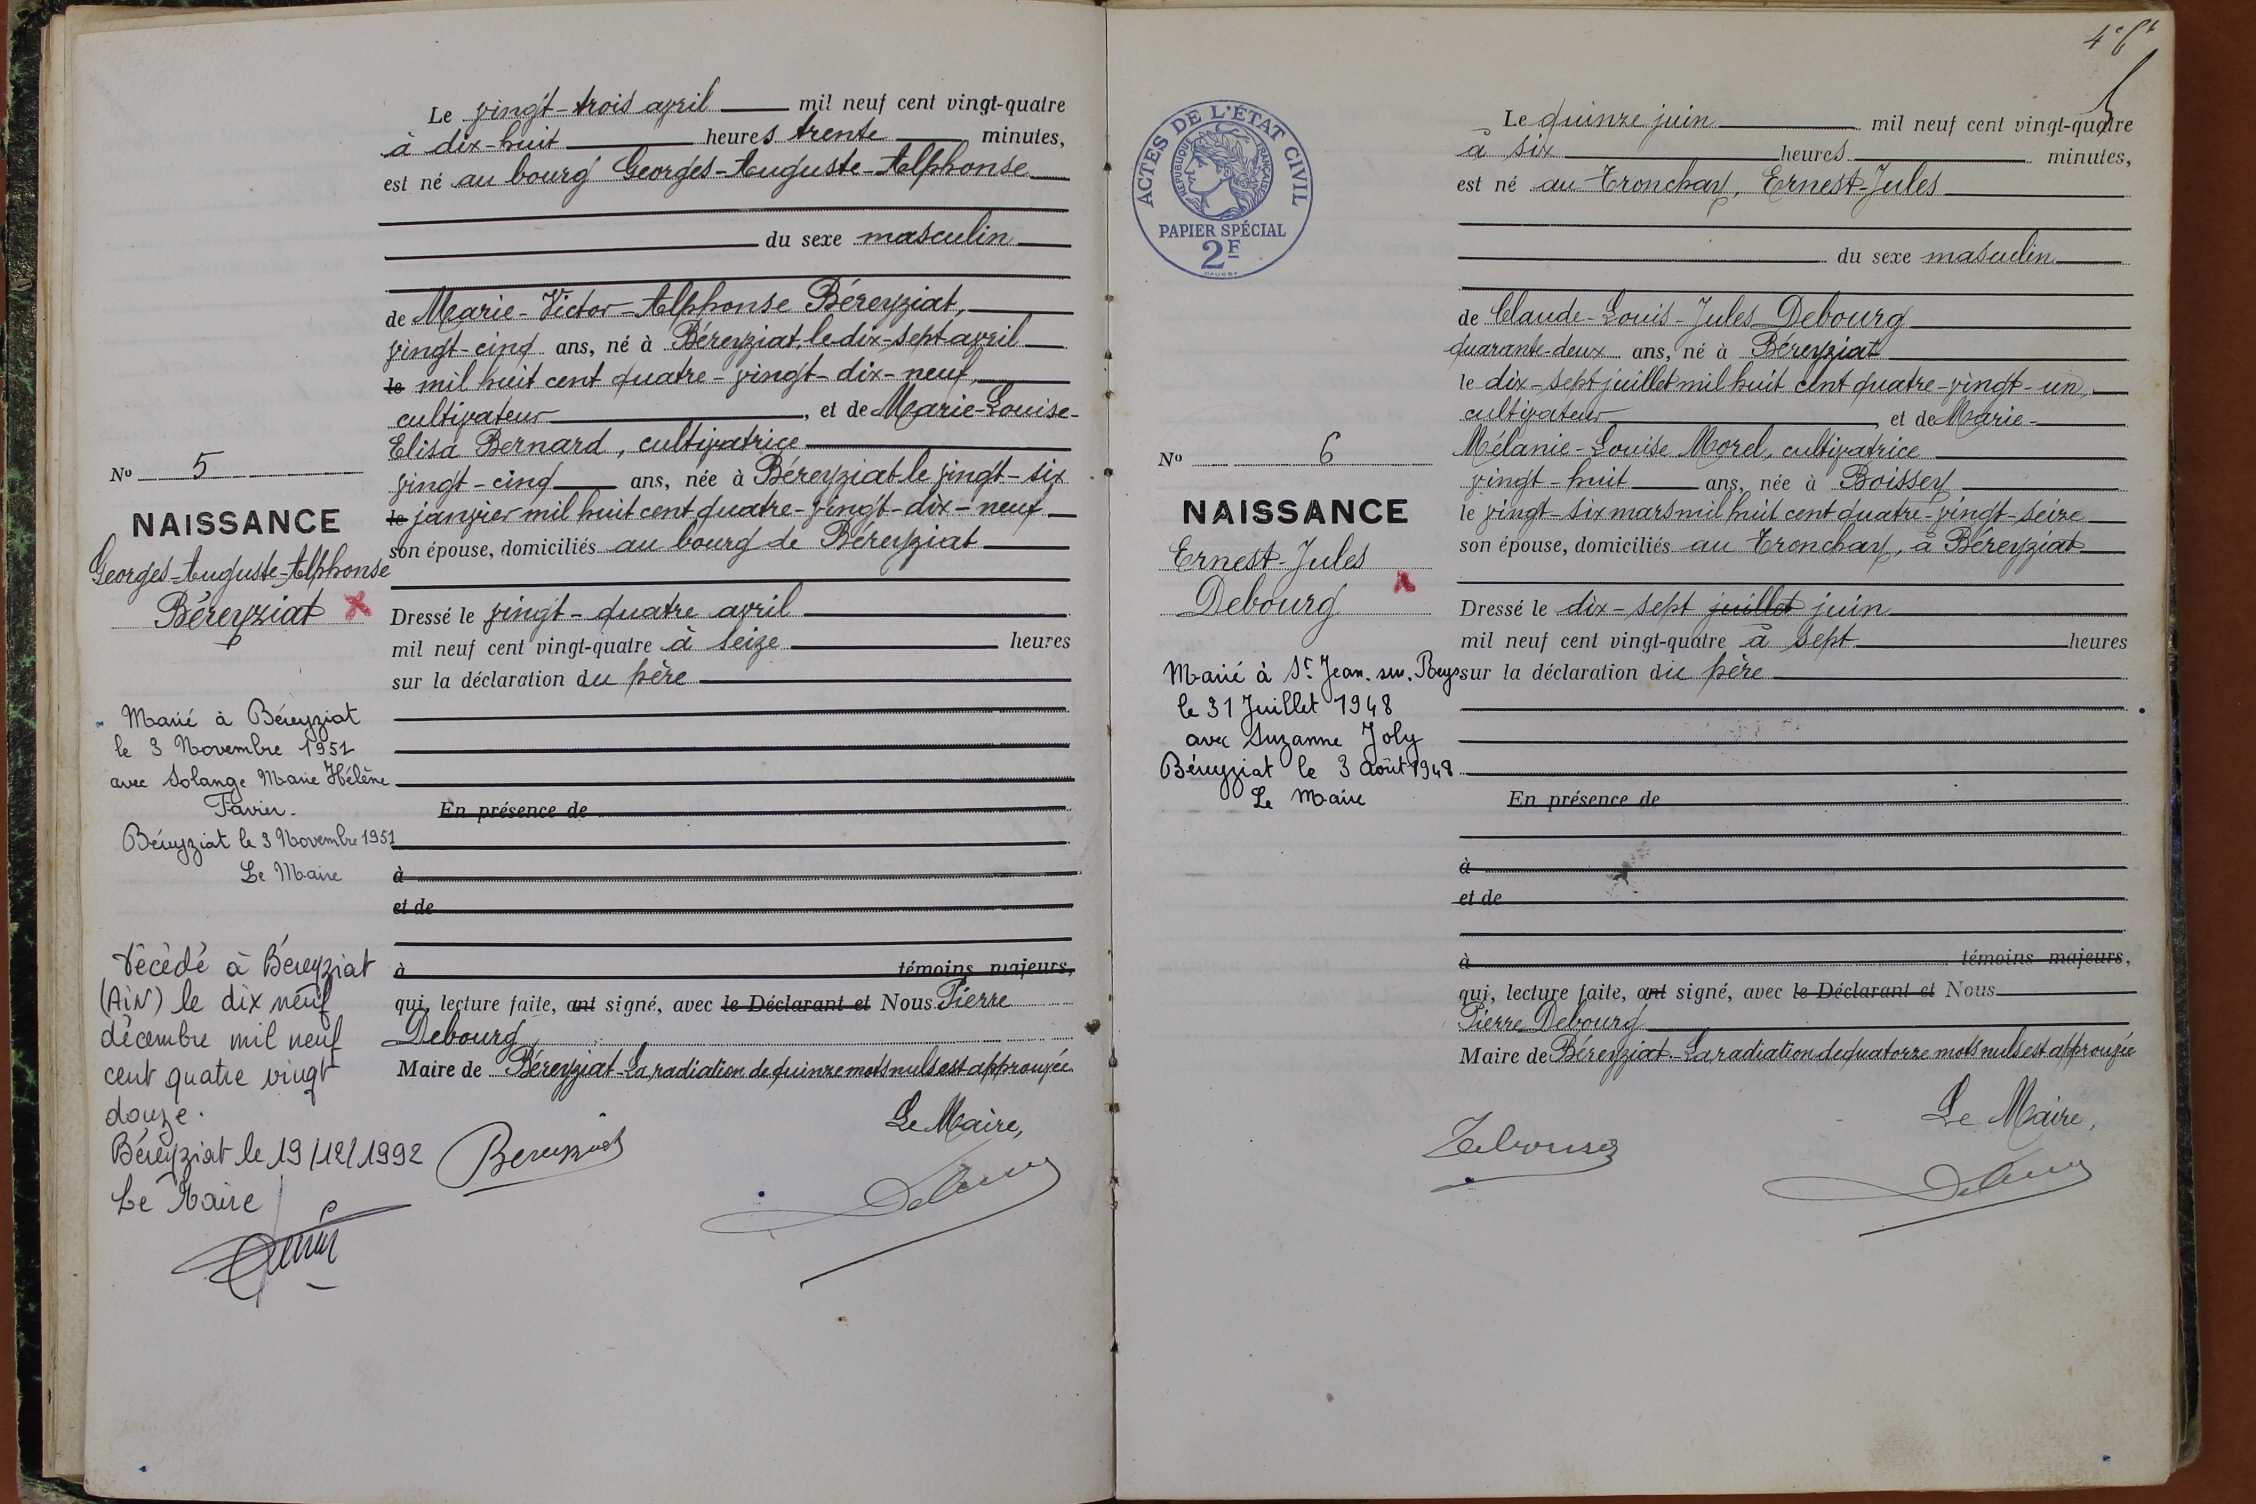 Le vingt-trois avril mil neuf cent vingt-quatre
à dix-huit heures trente minutes,
est né au bourg Georges-Auguste-Alphonse
du sexe masculin
de Marie-Victor-Alphonse Béreyziat,
vingt-cinq ans, né à Béreyziat, le dix-sept avril
le mil huit cent quatre-vingt-dix-neuf,
cultivateur, et de Marie-Louise-
Elisa Bernard, cultivatrice
vingt-cinq ans, née à Béreyziat le vingt-six
le janvier mil huit cent quatre-vingt-dix-neuf
son épouse, domiciliés au bourg de Béreyziat
Dressé le vingt-quatre avril
mil neuf cent vingt-quatre à seize heures
sur la déclaration du père
En présence de
à
et de
à témoins majeurs,
qui, lecture faite, ant signé, avec le Déclarant et Nous Pierre
Debourg,
Maire de Béreyziat - La radiation de quinze mots nuls est approuvée.
Le Maire,
Bereyziat
No 5
NAISSANCE
Georges-Auguste-Alphonse
Béreyziat
Marié à Béreyziat
le 3 Novembre 1951
avec Solange Marie Hélène
Favier.
Béreyziat le 3 Novembre 1951
Le Maire
Décédé à Béreyziat
(AiN) le dix neuf
décembre mil neuf
cent quatre vingt
douze.
Béreyziat le 19/12/1992
Le Maire
ACTES DE L'ÉTAT CIVIL
RÉPUBLIQUE FRANÇAISE
PAPIER SPÉCIAL
2F
Le quinze juin mil neuf cent vingt-quatre
à six heures minutes,
est né au Tronchay, Ernest-Jules
du sexe masculin
de Claude-Louis-Jules Debourg
quarante-deux ans, né à Béreyziat
le dix-sept juillet mil huit cent quatre-vingt-un,
cultivateur, et de Marie-
Mélanie-Louise Morel, cultivatrice
vingt-huit ans, née à Boissey
le vingt-six mars mil huit cent quatre-vingt-seize
son épouse, domiciliés au Tronchay, à Béreyziat
Dressé le dix-sept juillet juin
mil neuf cent vingt-quatre à sept heures
sur la déclaration du père
En présence de
à
et de
à témoins majeurs,
qui, lecture faite, ant signé, avec le Déclarant et Nous
Pierre Debourg
Maire de Béreyziat. La radiation de quatorze mots nuls est approuvée
Le Maire,
Debourg
No 6
NAISSANCE
Ernest-Jules
Debourg
Marié à St. Jean. sur. Reys
le 31 Juillet 1948
avec Suzanne Joly
Béreyziat le 3 août 1948
Le Maire